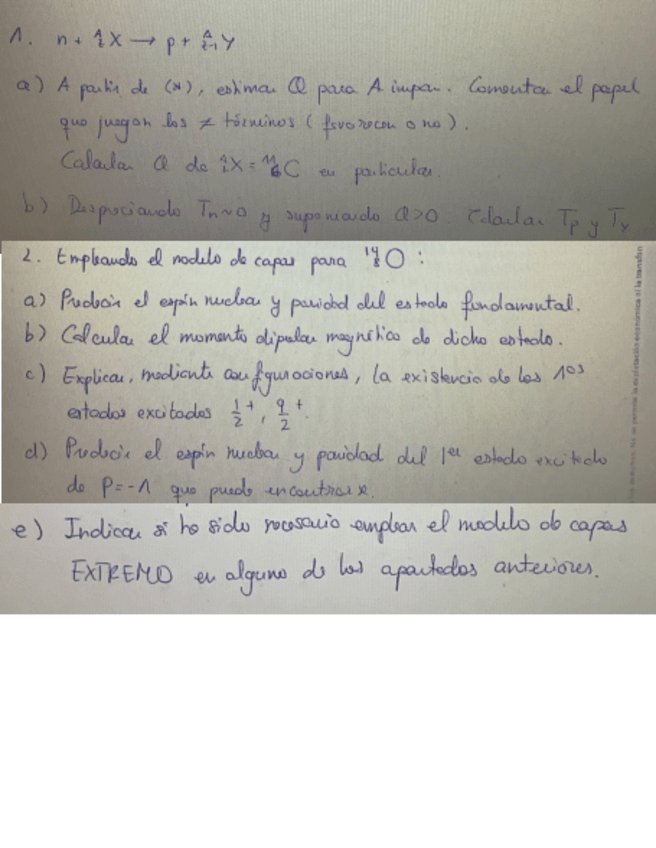 1. n + ᴬzX → p + ᴬz-1Y
a) A partir de (*), estimar Q para A impar. Comentar el papel
que juegan los ≠ términos (favorecen o no).
Calcular Q de ᴬzX = C en particular.
b) Despreciando Tn~0 y suponiendo Q>0. Calcular Tp y TY
2. Empleando el modelo de capas para O :
a) Predecir el espín nuclear y paridad del estado fundamental.
b) Calcular el momento dipolar magnético de dicho estado.
c) Explicar, mediante configuraciones, la existencia de los 1os
estados excitados 1/2+, 9/2+.
d) Predecir el espín nuclear y paridad del 1er estado excitado
de P=-1 que puede encontrarse.
e) Indicar si ha sido necesario emplear el modelo de capas
EXTREMO en alguno de los apartados anteriores.